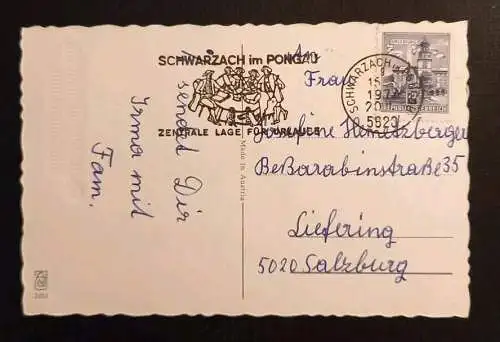 SCHWARZACH im PONGAU
ZENTRALE LAGE FÜR URLAUBE
sendet Dir
Irma mit
Fam.
Made in Austria
An
Frau
Josefine Hemetzberger
Beßarabinstraße 35
Liefering
5020 Salzburg
SCHWARZACH
5620
REPUBLIK ÖSTERREICH